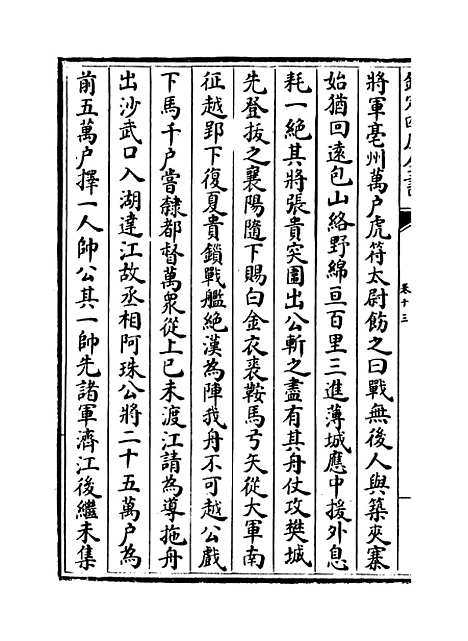 卷十三
將軍亳州萬户虎符太尉飭之曰戰無後人與築夾寨
始猶回遠包山絡野綿亘百里三進薄城應中援外息
耗一絶其將張貴突圍出公斬之盡有其舟仗攻樊城
先登拔之襄陽隨下賜白金衣裘鞍馬弓矢從大軍南
征越郢下復夏貴鎖戰艦絶漢為陣我舟不可越公戲
下馬千户嘗隸都督萬衆從上已未渡江請為導拖舟
出沙武口入湖達江故丞相阿珠公將二十五萬户為
前五萬户擇一人帥公其一帥先諸軍濟江後繼未集